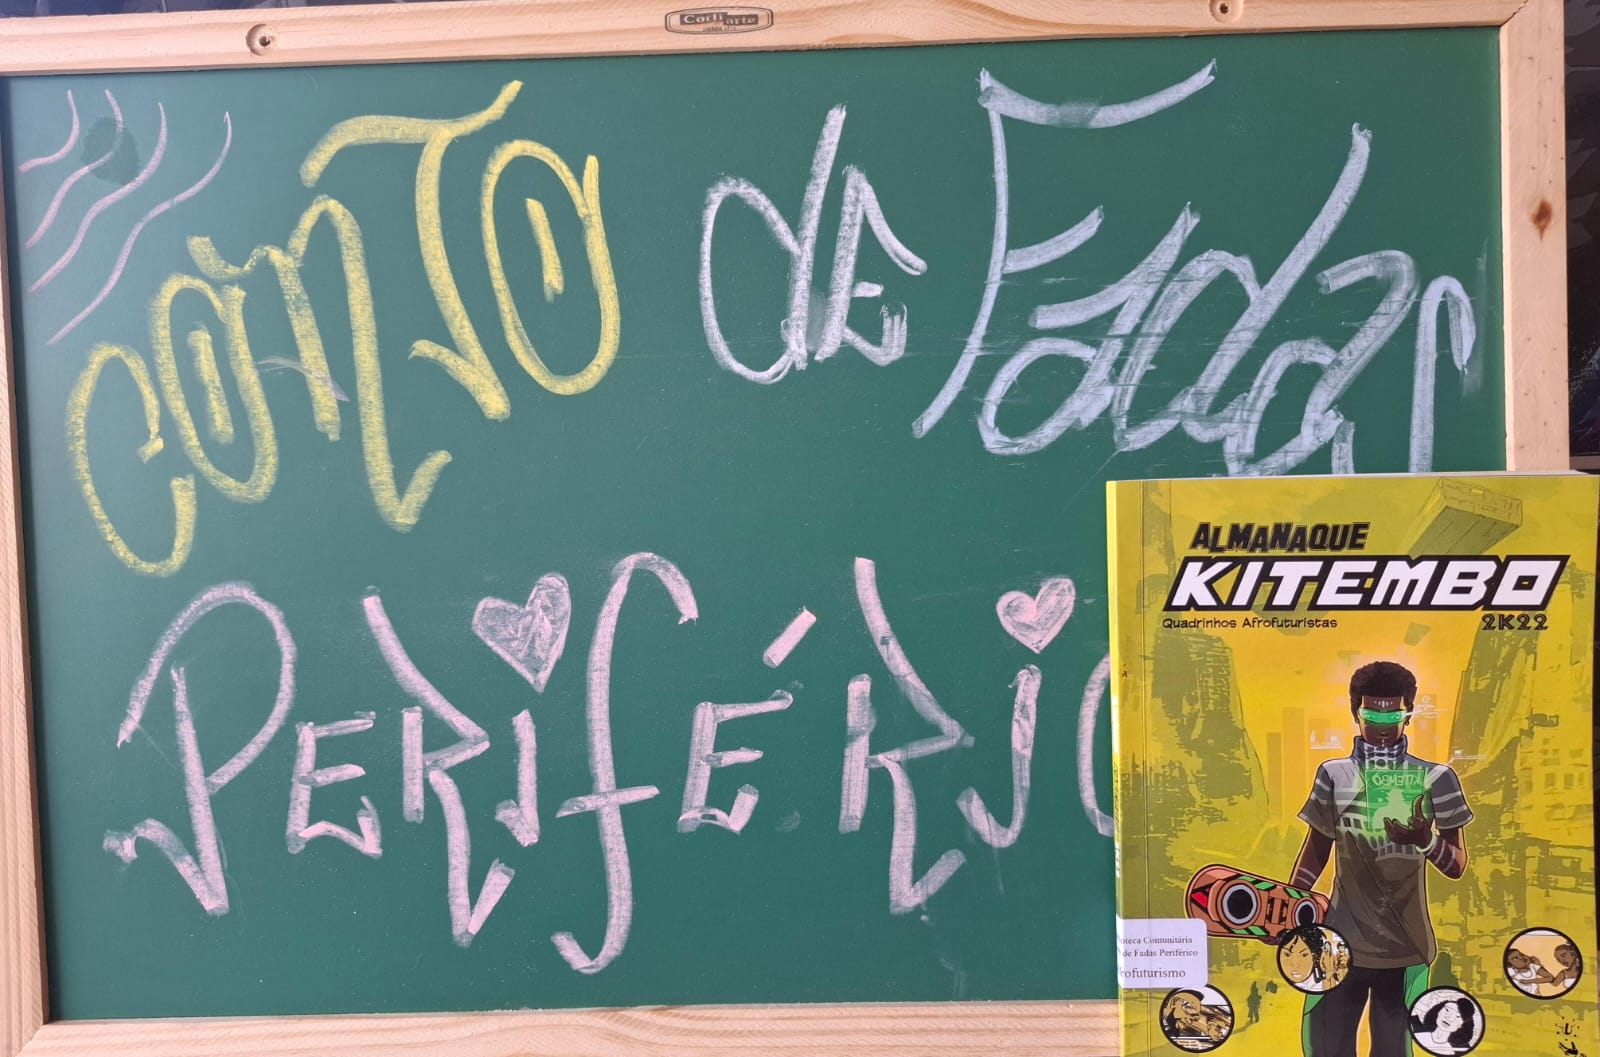 Corti arte
CONTO de Fadas
PERIFÉRIC
ALMANAQUE
KITEMBO
Quadrinhos Afrofuturistas
2K22
KITEMBO
oteca Comunitária
de Fadas Periférico
rofuturismo